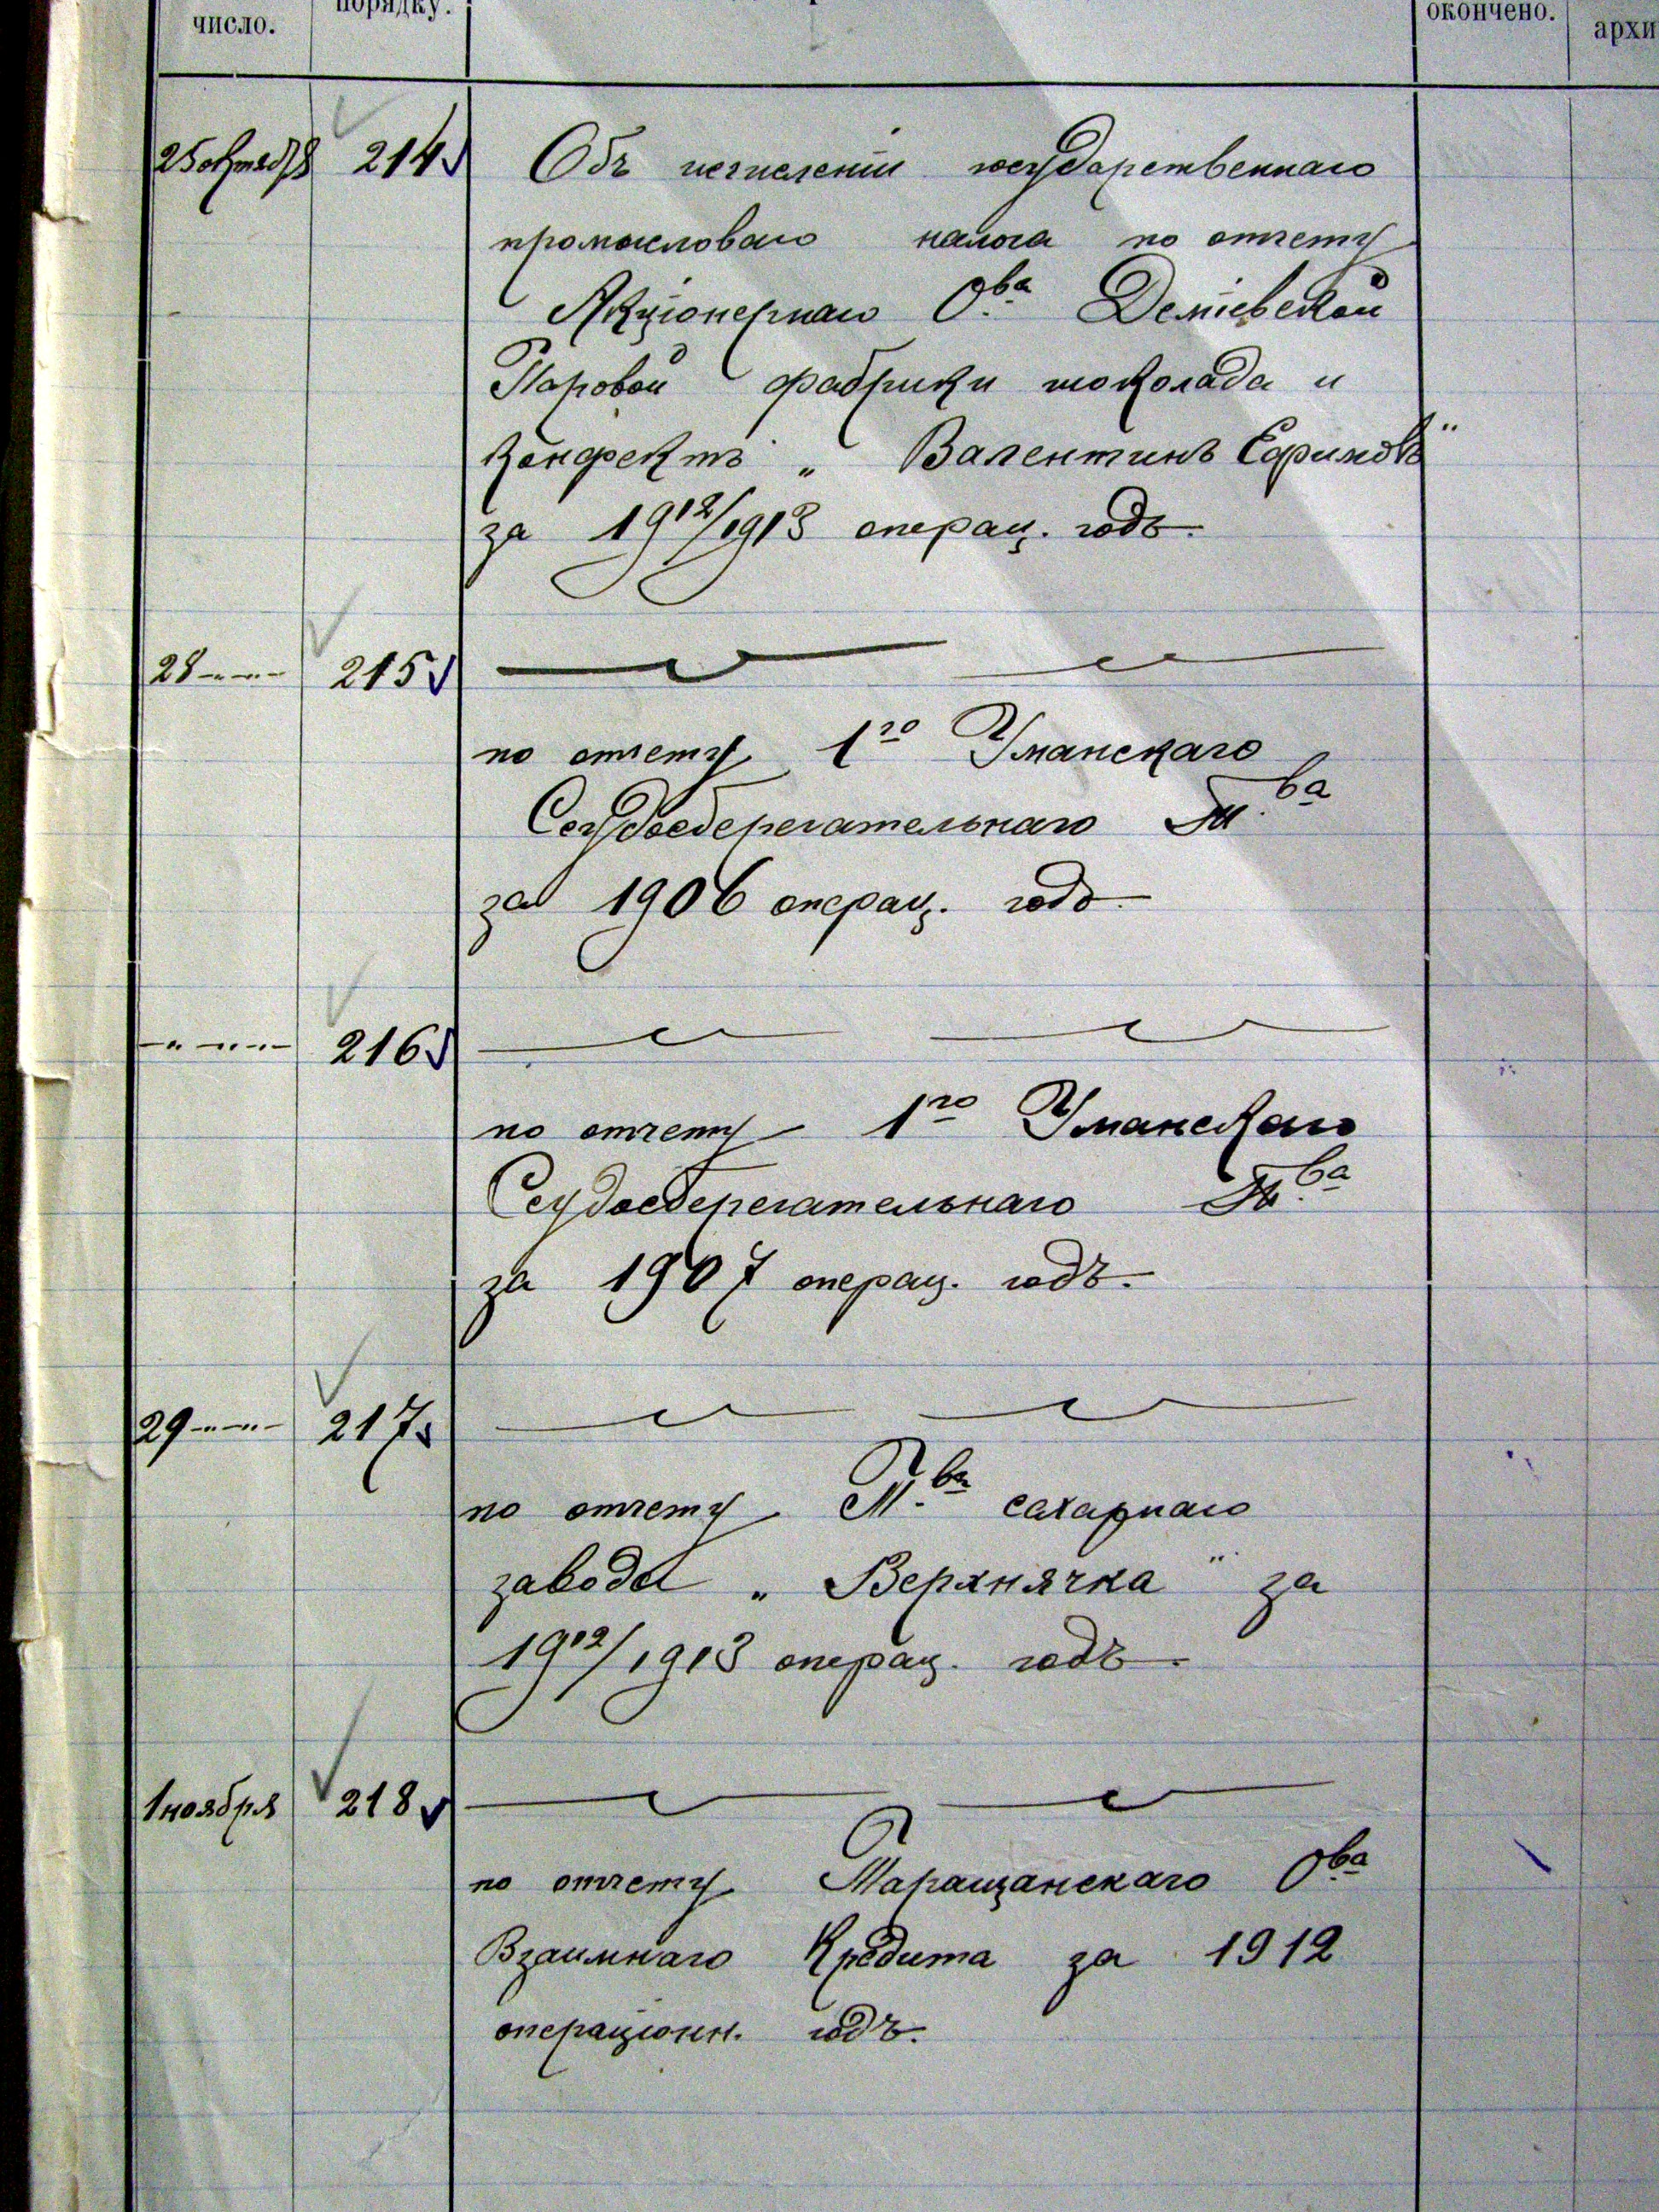 число.
порядку.
окончено.
архи
25 октября 214 Объ исчисленіи государственнаго
промысловаго налога по отчету
Акціонернаго О-ва Деміевской
Паровой фабрики шоколада и
конфектъ „Валентинъ Ефимовъ"
за 1912/1913 операц. годъ.
28 —„— 215
по отчету 1го Уманскаго
Ссудосберегательнаго Т-ва
за 1906 операц. годъ
—„—„— 216
по отчету 1го Уманскаго
Ссудосберегательнаго Т-ва
за 1907 операц. годъ.
29 —„— 217
по отчету Т-ва сахарнаго
завода „Верхнячка" за
1912/1913 операц. годъ.
1 ноября 218
по отчету Таращанскаго О-ва
Взаимнаго Кредита за 1912
операціонн. годъ.